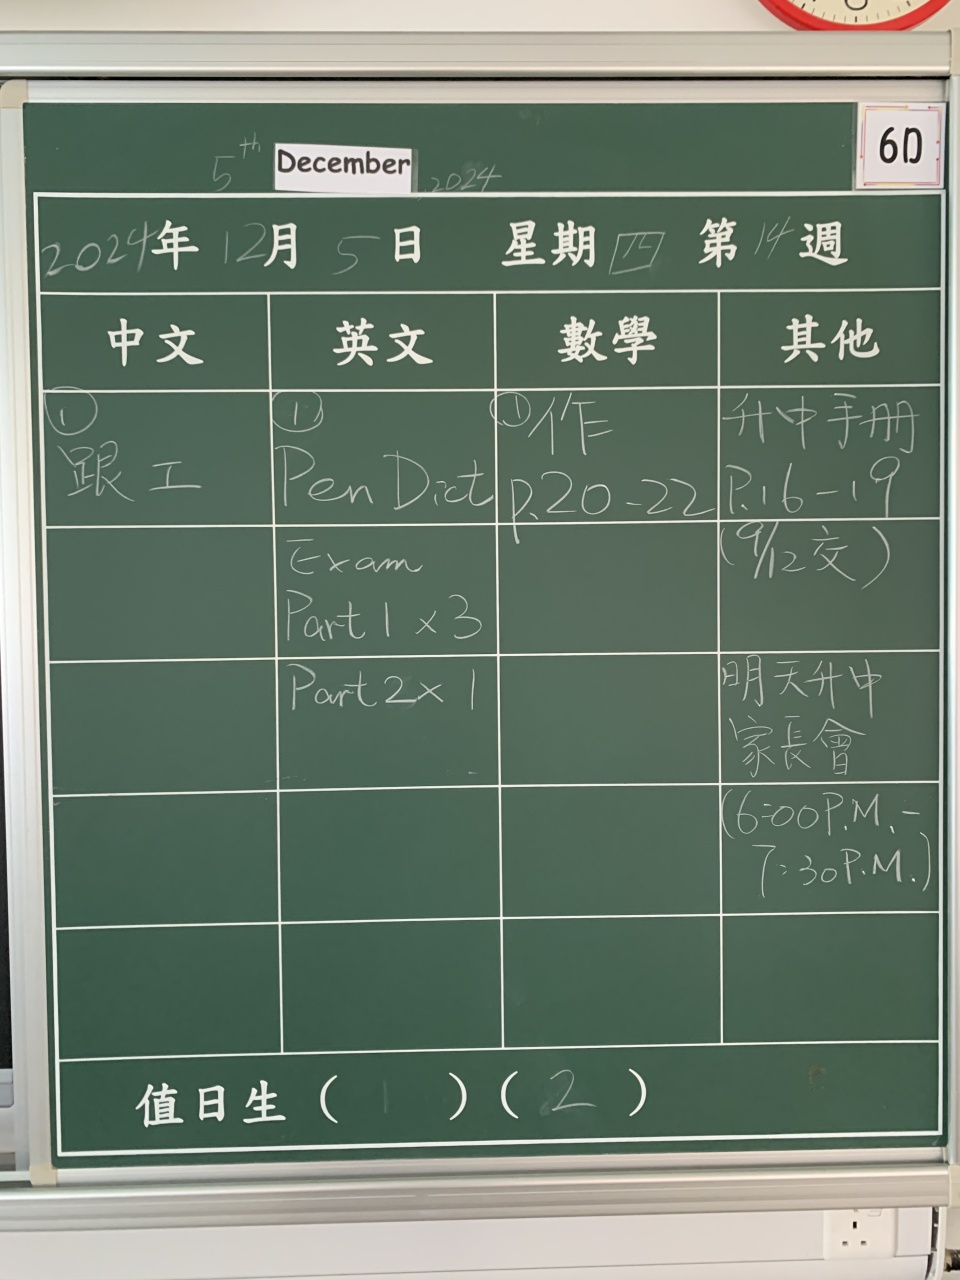 5th December, 2024
6D
2024年12月5日 星期四 第14週
中文 英文 數學 其他
① ① ①作 升中手冊
跟工 Pen Dict p.20-22 P.16-19
Exam (9/12交)
Part 1 x 3
Part 2 x 1 明天升中
家長會
(6:00P.M.-
7:30P.M.)
值日生 ( 1 ) ( 2 )